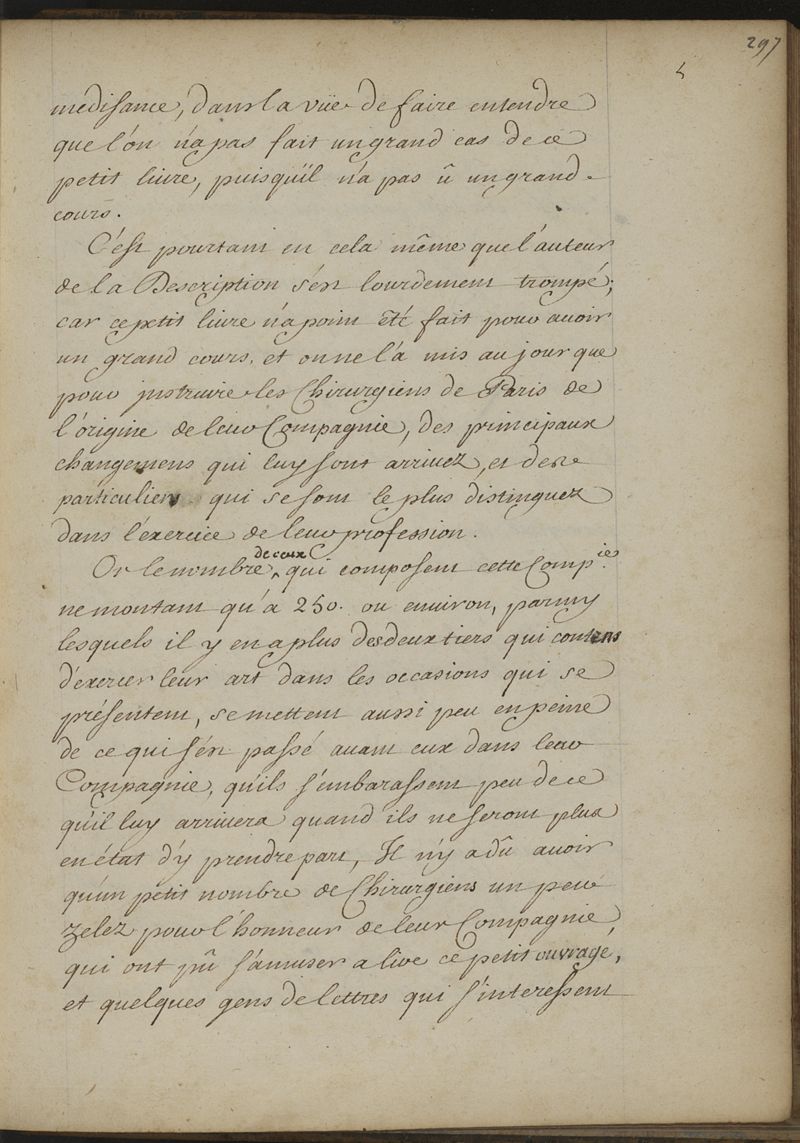 297
5
médisance, dans la vüe de faire entendre
que l'on n'a pas fait un grand cas de ce
petit livre, puisqu'il n'a pas û un grand
cours.
C'est pourtant en cela même que l'auteur
de la Description s'est lourdement trompé;
car ce petit livre n'a point êté fait pour avoir
un grand cours, et on ne l'a mis au jour que
pour instruire les Chirurgiens de Paris de
l'origine de leur Compagnie, des principaux
changemens qui luy sont arrivez, et de
particuliers qui se sont le plus distinguez
dans l'exercice de leur profession.
Or le nombre de ceux qui composent cette Comp.ie
ne montant qu'a 250. ou environ, parmy
lesquels il y en a plus des deux tiers qui contens
d'exercer leur art dans les occasions qui se
présentent, se mettent aussi peu en peine
de ce qui s'est passé avant eux dans leur
Compagnie, qu'ils s'embarassent peu de ce
qu'il luy arrivera quand ils ne seront plus
en état d'y prendre part, Il n'y a dû avoir
qu'un petit nombre de Chirurgiens un peu
zelez pour l'honneur de leur Compagnie,
qui ont pû s'amuser a lire ce petit ouvrage,
et quelques gens de lettres qui s'interessent